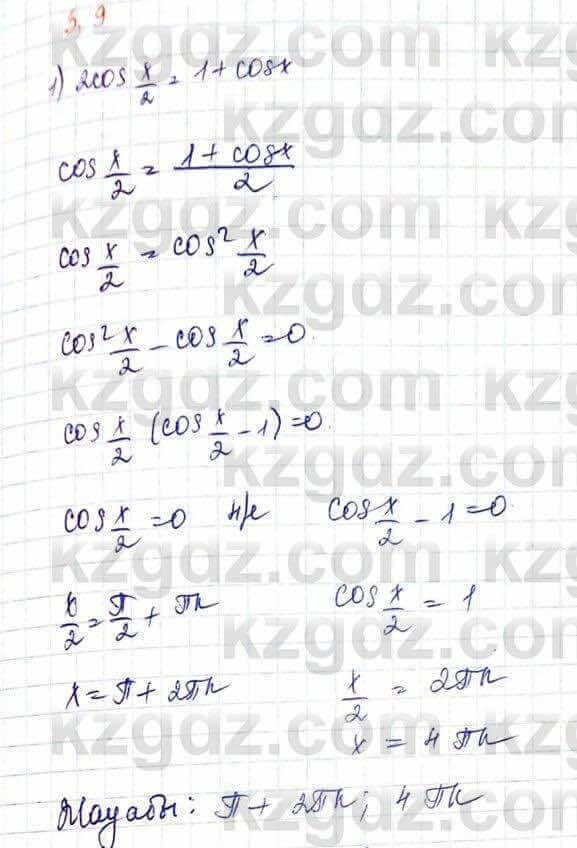 5.9
1) 2cos x/2 = 1 + cosx
cos x/2 = (1 + cosx)/2
cos x/2 = cos² x/2
cos² x/2 - cos x/2 = 0.
cos x/2 (cos x/2 - 1) = 0.
cos x/2 = 0 н/е cos x/2 - 1 = 0.
x/2 = π/2 + πn cos x/2 = 1
x = π + 2πn x/2 = 2πn
x = 4πn
Жауабы: π + 2πn; 4πn
kzgdz.com